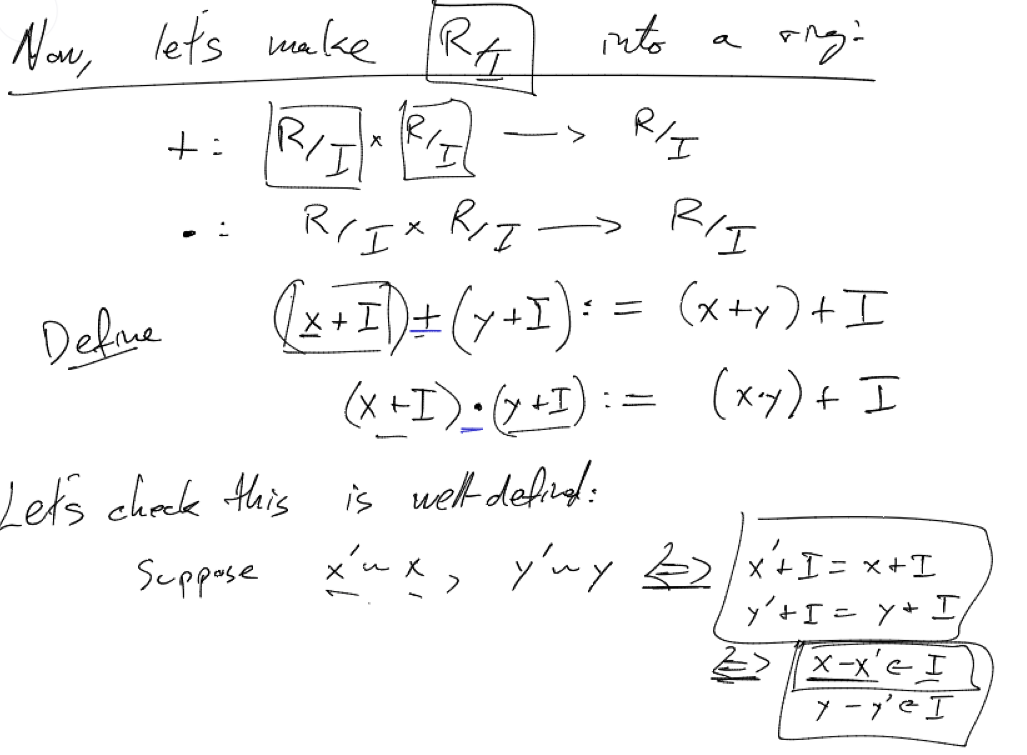 Now, let's make R/I into a ring:
+: R/I × R/I → R/I
·: R/I × R/I → R/I
Define (x+I)+(y+I) := (x+y)+I
(x+I)·(y+I) := (x·y)+I
Let's check this is well-defined:
Suppose x'~x, y'~y <=> x'+I = x+I
y'+I = y+I
<=> x-x' ∈ I
y-y' ∈ I